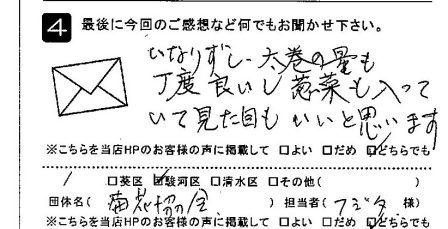 4 最後に今回のご感想など何でもお聞かせ下さい。
いなりずし・太巻の量も
丁度良いし惣菜も入って
いて見た目もいいと思います
※こちらを当店HPのお客様の声に掲載して □よい □だめ ☑どちらでも
□葵区 ☑駿河区 □清水区 □その他(
団体名( ) 担当者(フジタ 様)
※こちらを当店HPのお客様の声に掲載して □よい □だめ □どちらでも